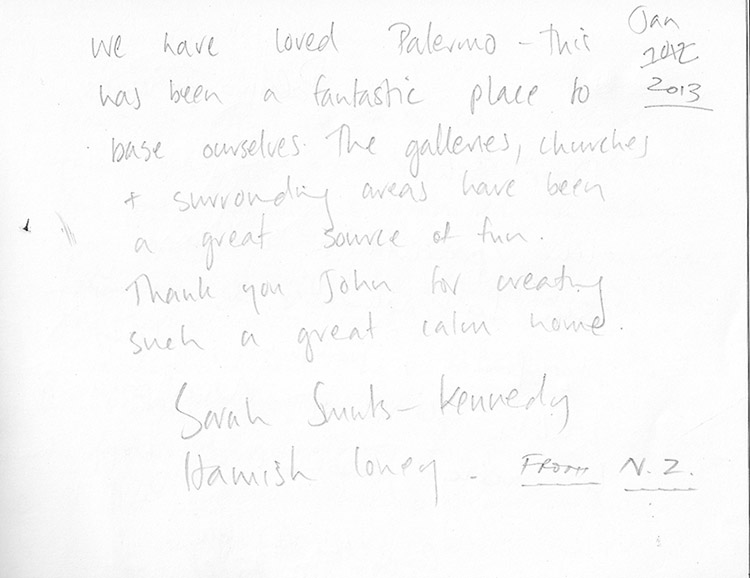 Jan
2013
We have loved Palermo - this
has been a fantastic place to
base ourselves. The galleries, churches
+ surrounding areas have been
a great source of fun.
Thank you John for creating
such a great calm home.
Sarah Smuts-Kennedy
Hamish Coney. FROM N.Z.